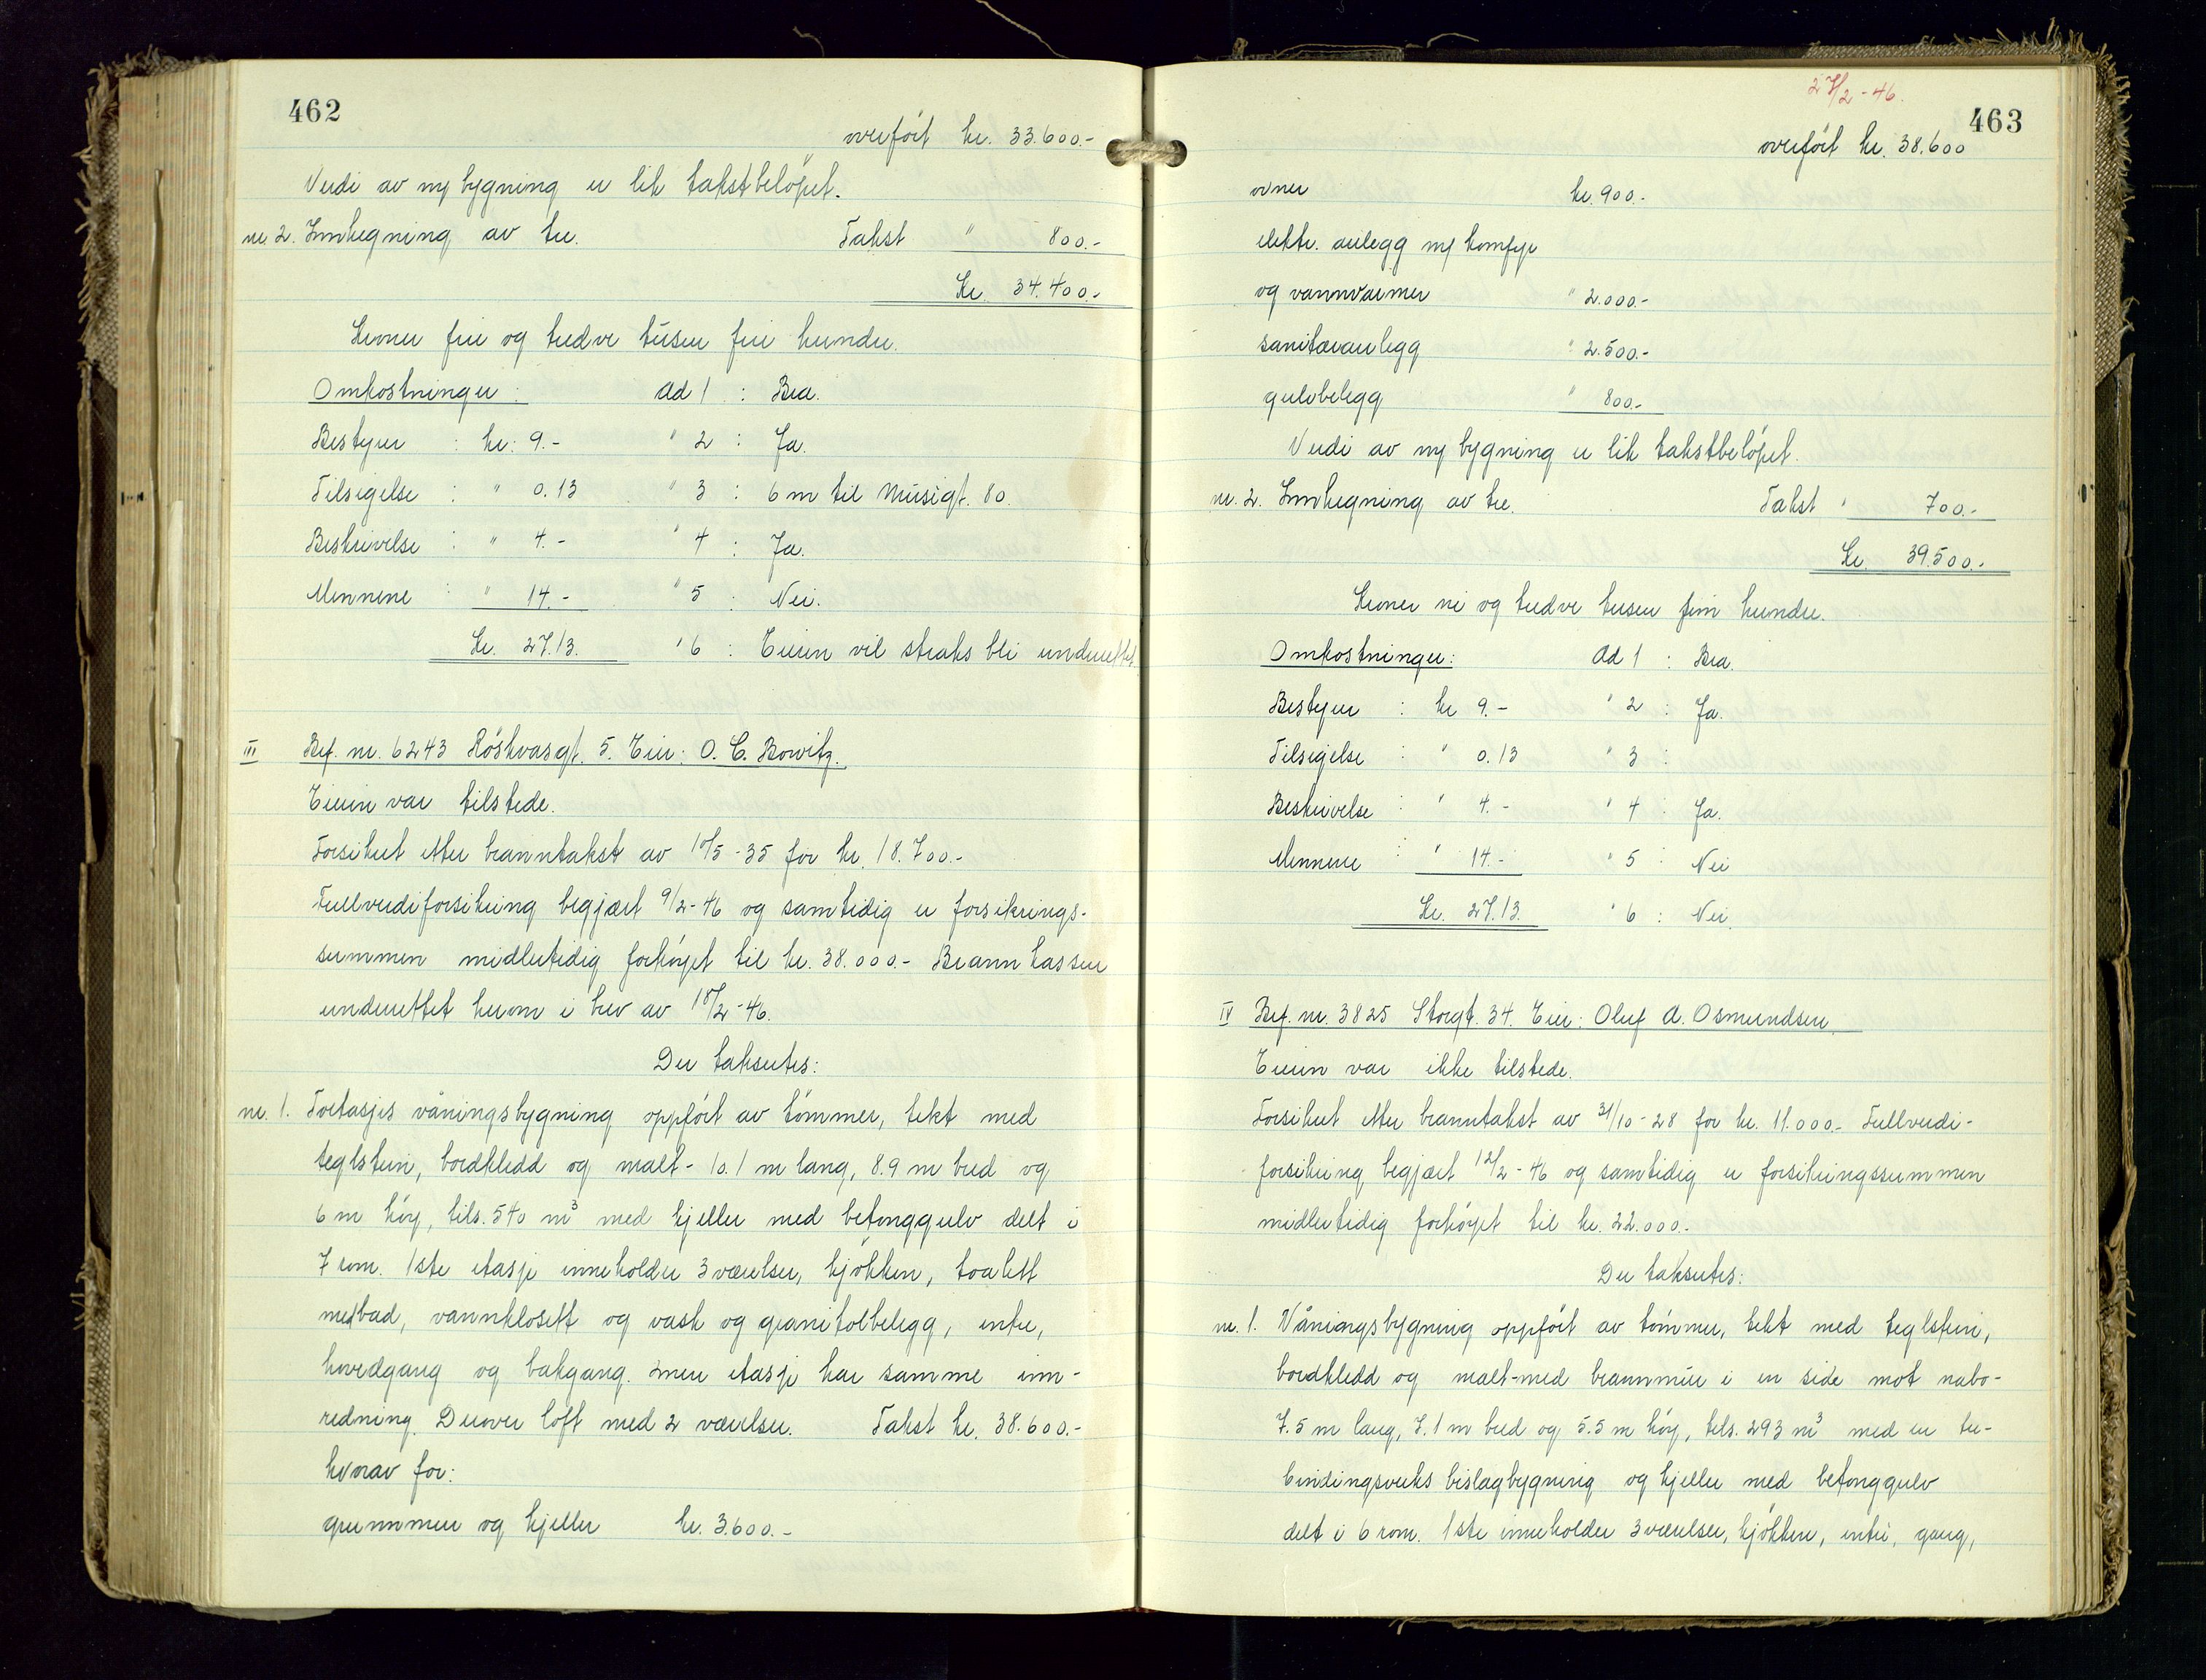 462
overført kr. 33.600.-
Verdi av ny bygning er lik takstbeløpet.
nr. 2. Innhegning av tre. Takst " 800.-
Kr. 34.400.-
Kroner fire og tredve tusen fire hundre.
Omkostninger: Ad 1 : Bra.
Bestyrer : kr: 9.- " 2 : Ja.
Tilsigelse : " 0.13 " 3 : 6 m til Musegt. 80.
Beskrivelse : " 4.- " 4 : Ja.
Mennene : " 14.- " 5 : Nei.
Kr. 27.13. " 6 : Eieren vil straks bli underrettet.
III Bef. nr. 6243 Röskvasgt. 5. Eier: O. C. Bowitz.
Eieren var tilstede.
Forsikret etter branntakst av 10/5-35 for kr. 18.700.-
Fullverdiforsikring begjært 9/2-46 og samtidig er forsikrings-
summen midlertidig forhöyet til kr. 38.000.- Brannkassen
underrettet herom i brev av 18/2-46.
Der takseres:
nr. 1. Toetasjes våningsbygning oppfört av tömmer, tekt med
teglstein, bordkledd og malt- 10.1 m lang, 8.9 m bred og
6 m höy, tils. 540 m³ med kjeller med betonggulv delt i
7 rom. 1ste etasje inneholder 3 værelser, kjökken, toalett
med bad, vannklosett og vask og granitolbelegg, entre,
hovedgang og bakgang. 2nen etasje har samme inn-
redning. Derover loft med 2 værelser. Takst kr. 38.600.-
hvorav for:
grunnmur og kjeller kr. 3.600.-
27/2-46.
463
overfört kr. 38.600
ovner kr. 900.-
elektr. anlegg m/ komfyr
og vannvarmer " 2.000.-
sanitæranlegg " 2.500.-
gulvbelegg " 800.-
Verdi av ny bygning er lik takstbelöpet.
nr. 2. Innhegning av tre. Takst " 700.-
Kr. 39.500.-
Kroner ni og tredve tusen fem hundre.
Omkostninger: Ad 1 : Bra.
Bestyrer : kr 9.- " 2 : Ja.
Tilsigelse : " 0.13 " 3 :
Beskrivelse : " 4.- " 4 : Ja.
Mennene : " 14.- " 5 : Nei
Kr. 27.13. " 6 : Nei.
IV Bef. nr. 3825 Storgt. 34. Eier: Oluf A. Osmundsen.
Eieren var ikke tilstede.
Forsikret etter branntakst av 31/10-28 for kr. 11.000.- Fullverdi-
forsikring begjært 12/2-46 og samtidig er forsikringssummen
midlertidig forhöyet til kr. 22.000.-
Der takseres:
nr. 1. Våningsbygning oppfört av tömmer, tekt med teglstein,
bordkledd og malt-med brannmur i en side mot nabo-
7.5 m lang, 7.1 m bred og 5.5 m höy, tils. 293 m³ med en tre-
bindingsverks bislagbygning og kjeller med betonggulv
delt i 6 rom. 1ste inneholder 3 værelser, kjökken, entre, gang,